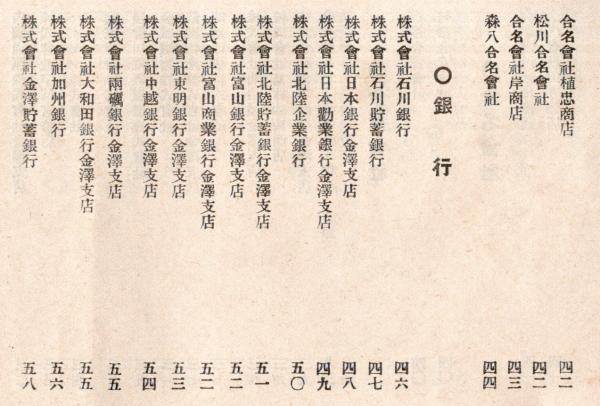 合名會社植忠商店 四二
松川合名會社 四二
合名會社岸商店 四三
森八合名會社 四四
〇銀行
株式會社石川銀行 四六
株式會社石川貯蓄銀行 四七
株式會社日本銀行金澤支店 四八
株式會社日本勸業銀行金澤支店 四九
株式會社北陸企業銀行 五〇
株式會社北陸貯蓄銀行金澤支店 五一
株式會社富山銀行金澤支店 五二
株式會社富山商業銀行金澤支店 五二
株式會社東明銀行金澤支店 五三
株式會社中越銀行金澤支店 五四
株式會社兩礪銀行金澤支店 五五
株式會社大和田銀行金澤支店 五五
株式會社加州銀行 五六
株式會社金澤貯蓄銀行 五八